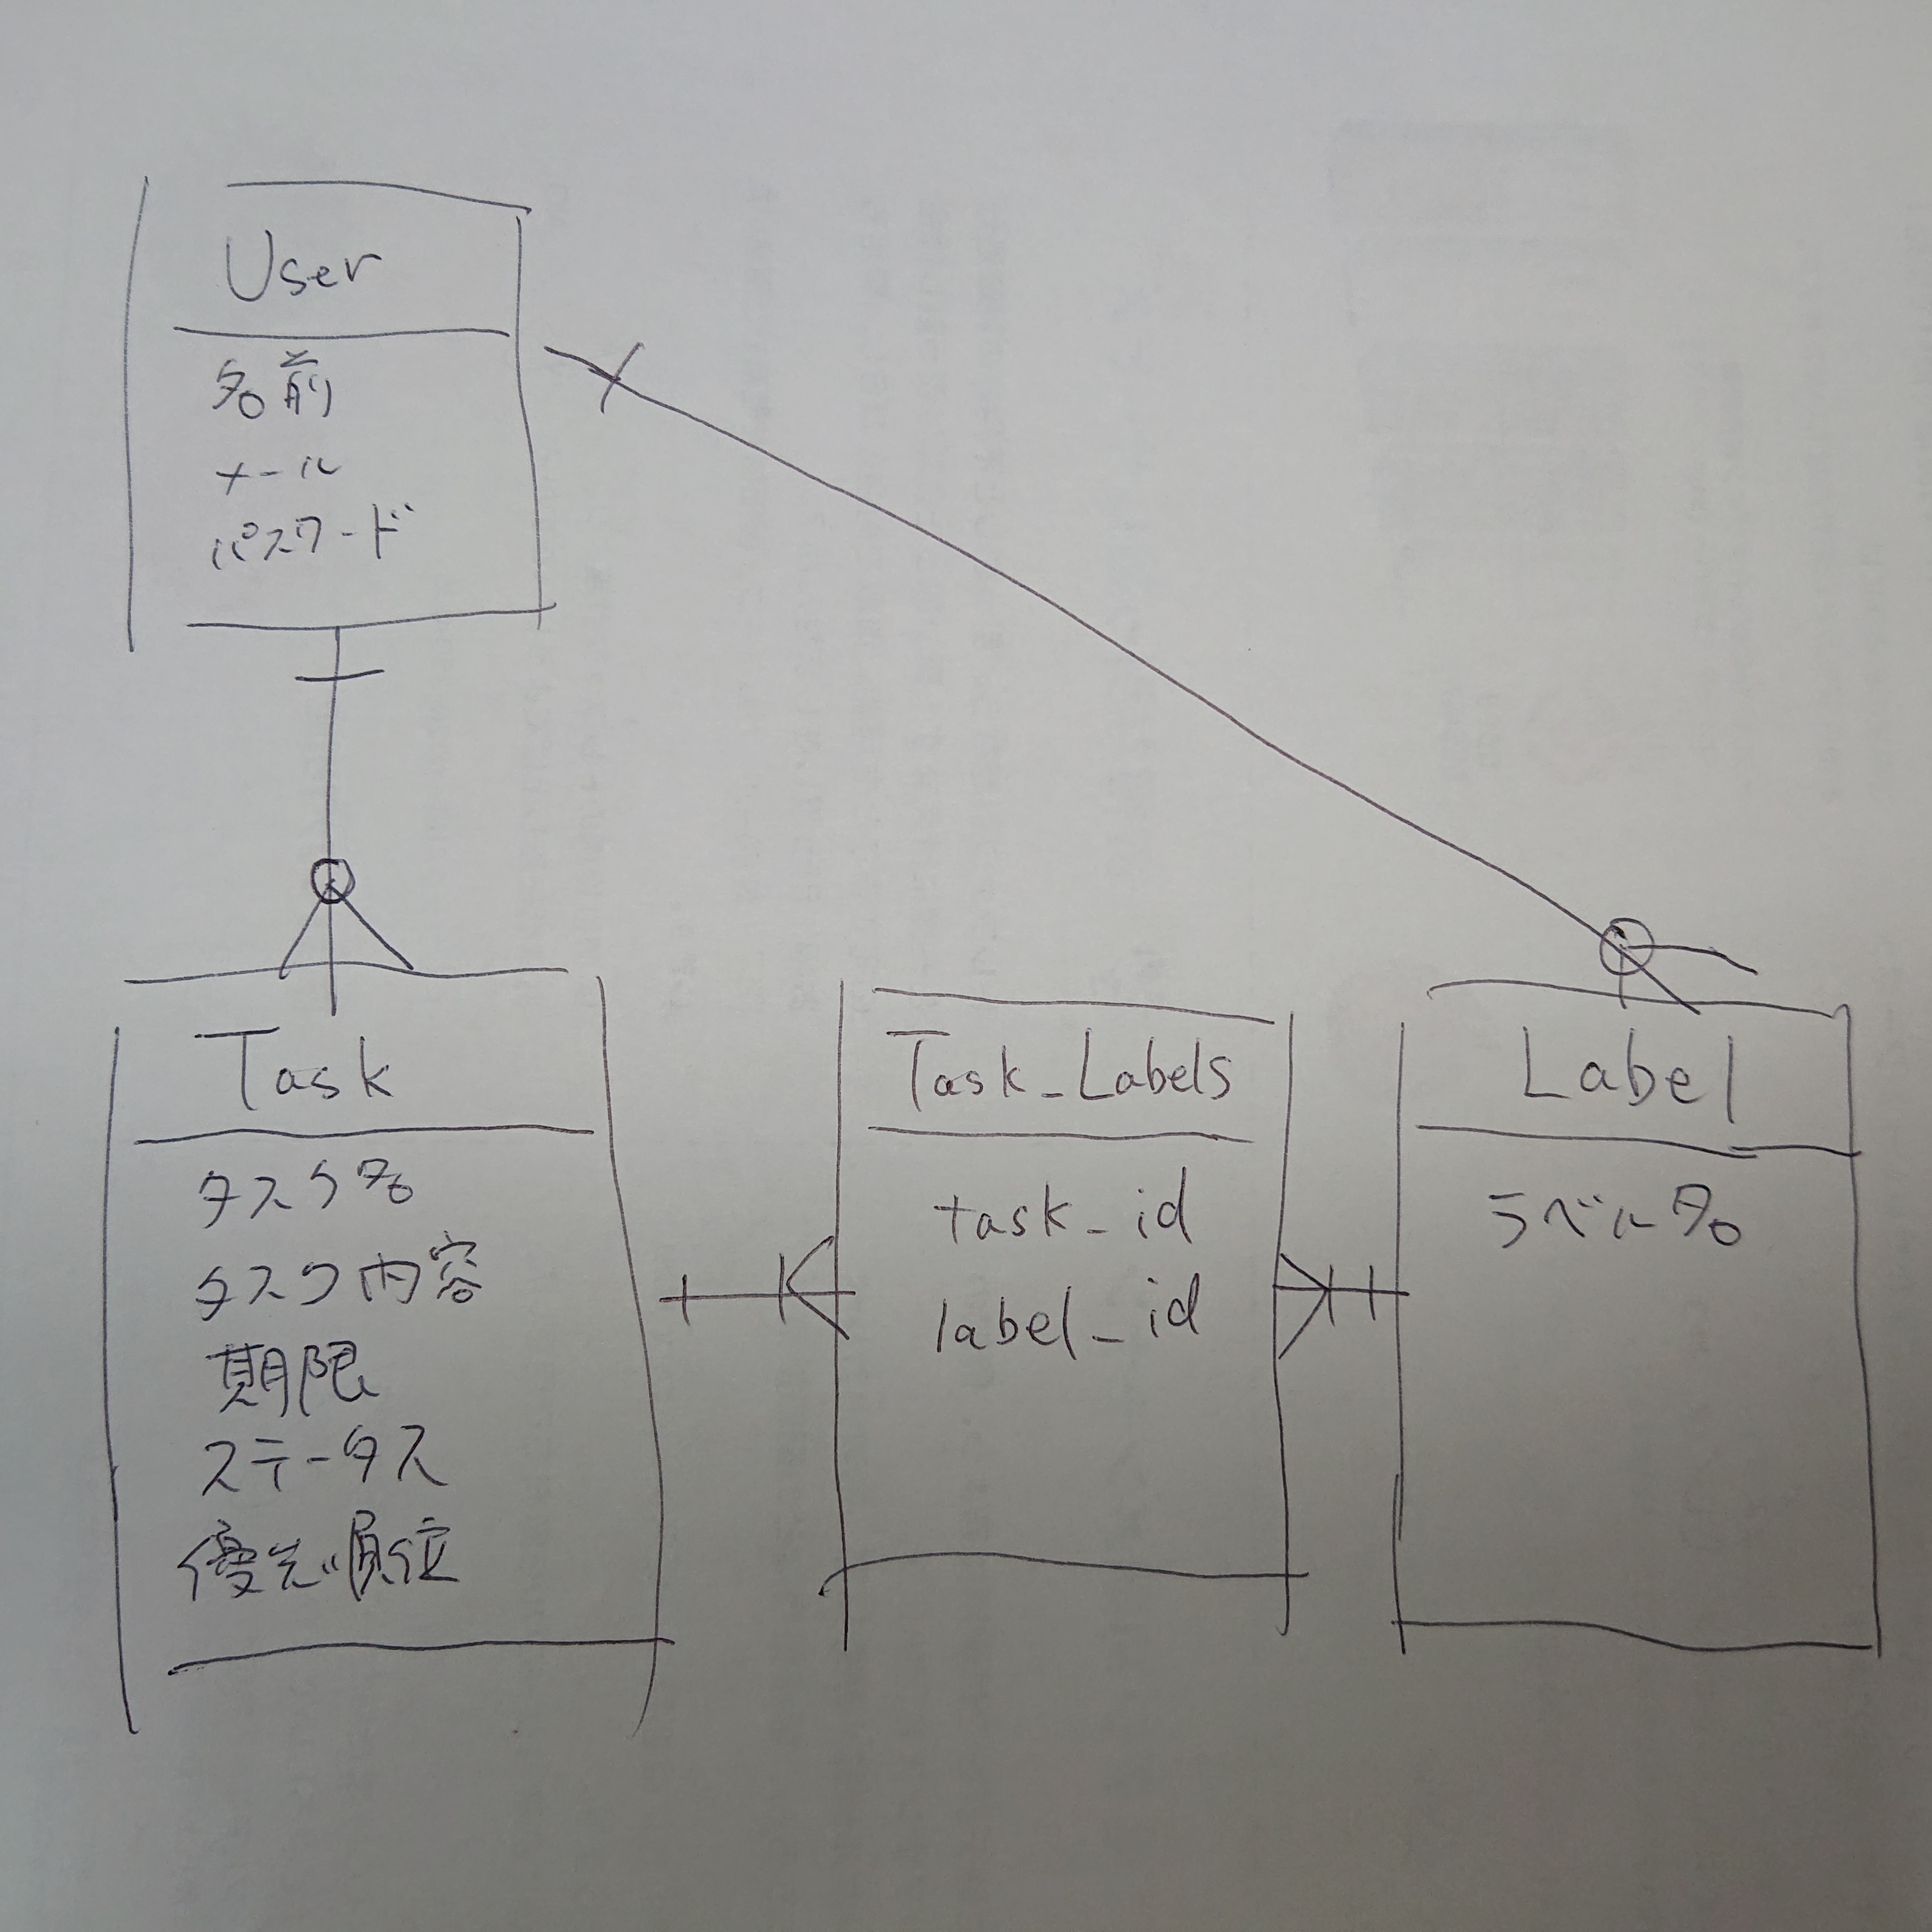 User
名前
メール
パスワード
Task
タスク名
タスク内容
期限
ステータス
優先順位
Task_Labels
task_id
label_id
Label
ラベル名